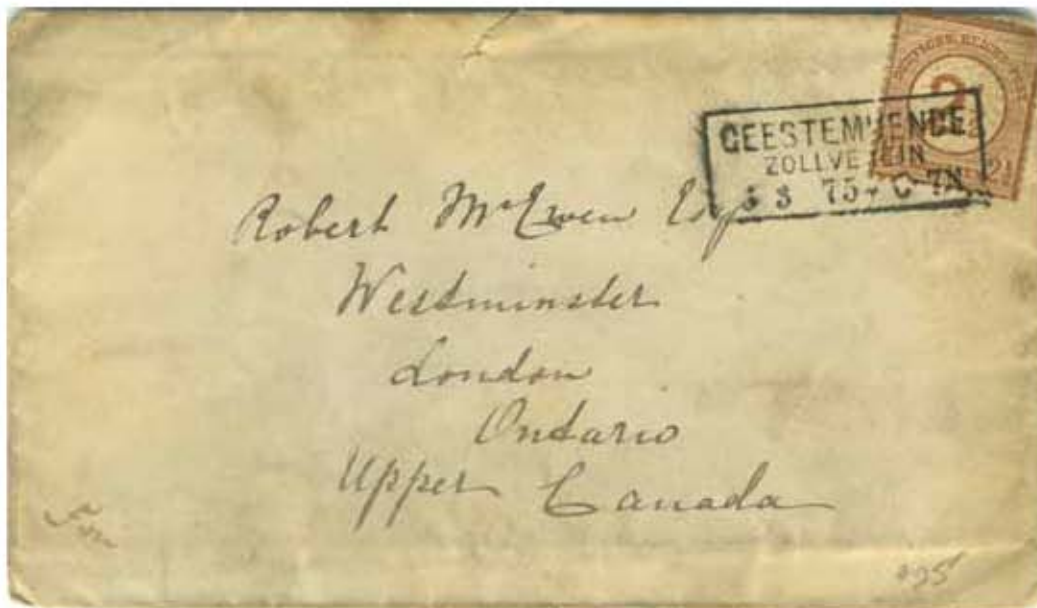 DEUTSCHE REICHS-POST
GEESTEMUENDE
ZOLLVEREIN
75
Robert McEwen Esq
Westminster
London
Ontario
Upper Canada